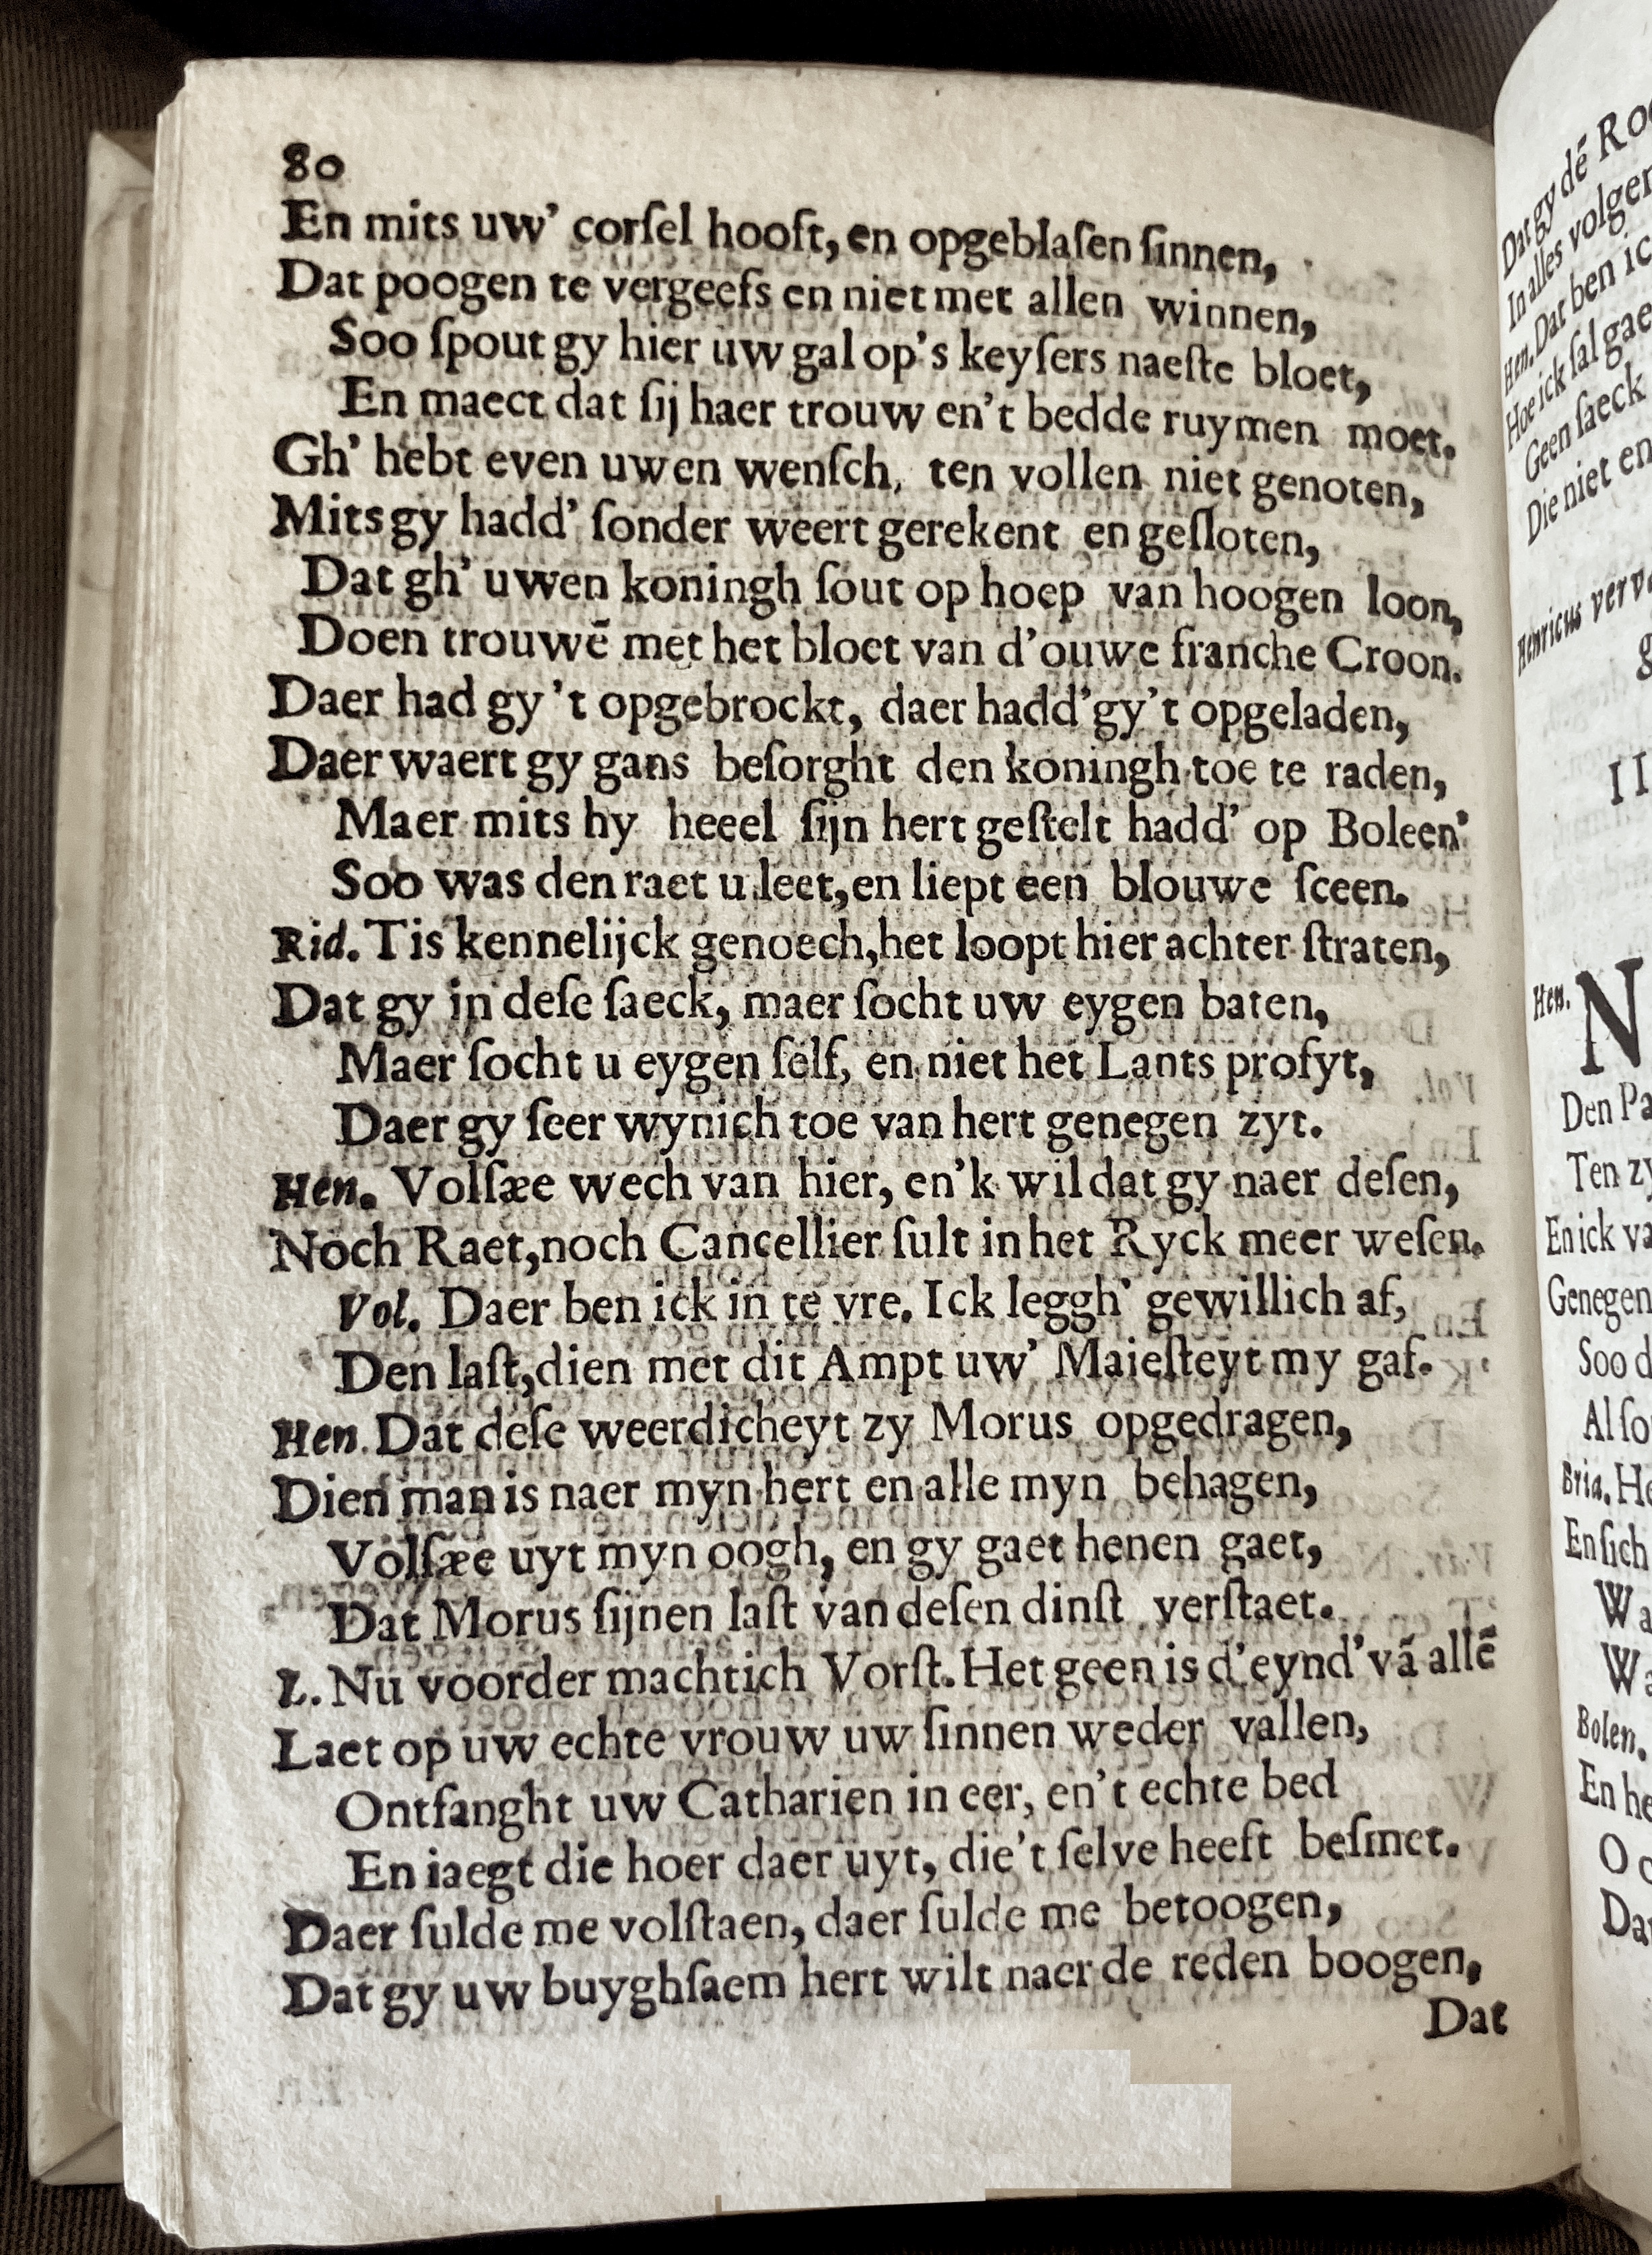 80
En mits uw' corſel hooft, en opgeblaſen ſinnen,
Dat poogen te vergeefs en niet met allen winnen,
Soo ſpout gy hier uw gal op's keyſers naeſte bloet,
En maect dat ſij haer trouw en't bedde ruymen moet.
Gh' hebt even uwen wenſch, ten vollen niet genoten,
Mits gy hadd' ſonder weert gerekent en geſloten,
Dat gh' uwen koningh ſout op hoep van hoogen loon,
Doen trouwē met het bloet van d'ouwe franche Croon.
Daer had gy 't opgebrockt, daer hadd'gy't opgeladen,
Daer waert gy gans beſorght den koningh toe te raden,
Maer mits hy heeel ſijn hert geſtelt hadd' op Boleen'
Soo was den raet u leet, en liept een blouwe ſceen.
Rid. Tis kennelijck genoech, het loopt hier achter ſtraten,
Dat gy in deſe ſaeck, maer ſocht uw eygen baten,
Maer ſocht u eygen ſelf, en niet het Lants profyt,
Daer gy ſeer wynich toe van hert genegen zyt.
Hen. Volſæe wech van hier, en'k wil dat gy naer deſen,
Noch Raet, noch Cancellier ſult in het Ryck meer weſen.
Vol. Daer ben ick in te vre. Ick leggh' gewillich af,
Den laſt, dien met dit Ampt uw' Maieſteyt my gaf.
Hen. Dat deſe weerdicheyt zy Morus opgedragen,
Dien man is naer myn hert en alle myn behagen,
Volſæe uyt myn oogh, en gy gaet henen gaet,
Dat Morus ſijnen laſt van deſen dinſt verſtaet.
L. Nu voorder machtich Vorſt. Het geen is d'eynd' vā allē
Laet op uw echte vrouw uw ſinnen weder vallen,
Ontfanght uw Catharien in eer, en't echte bed
En iaegt die hoer daer uyt, die't ſelve heeft beſmet.
Daer ſulde me volſtaen, daer ſulde me betoogen,
Dat gy uw buyghſaem hert wilt naer de reden boogen,
Dat
Dat gy dē Ro
In alles volgen
Hen. Dat ben ic
Hoe ick ſal gae
Geen ſaeck
Die niet en
Henricus verv
g
II
Hen. N
Den Pa
Ten zy
En ick va
Genegen
Soo d
Al ſo
Bria. He
En ſich
Wa
Wa
Bolen.
En he
O
Da